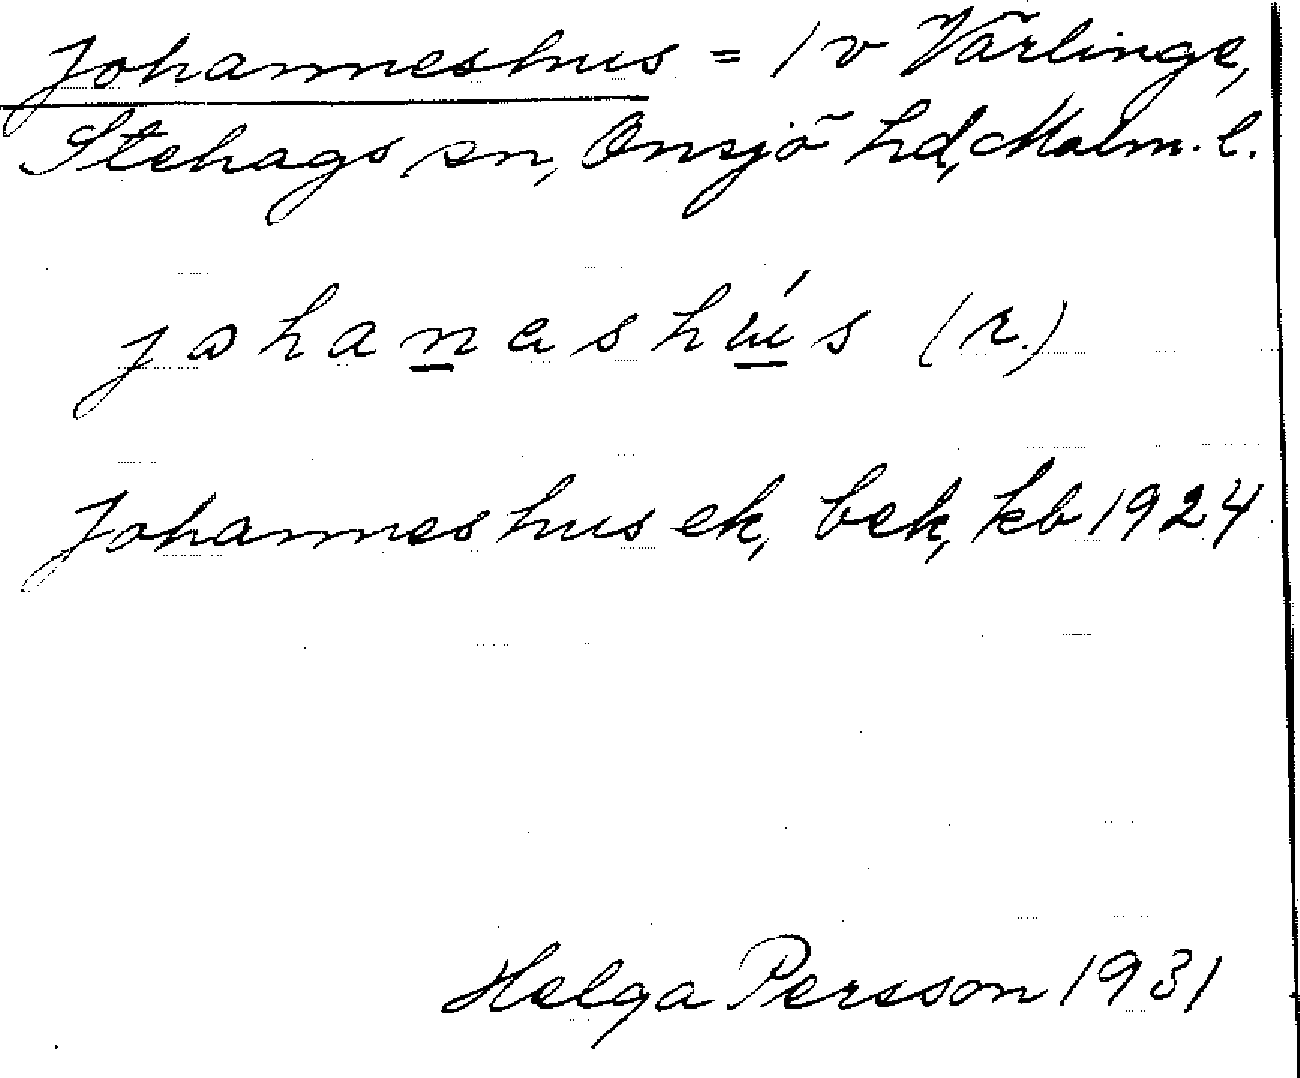 Johanneshus = 1 v Värlinge,
Stehags sn, Onsjö hd, Malm. l.
johanashú̲s (r.)
Johanneshus ek, bek, kb 1924
Helga Persson 1931